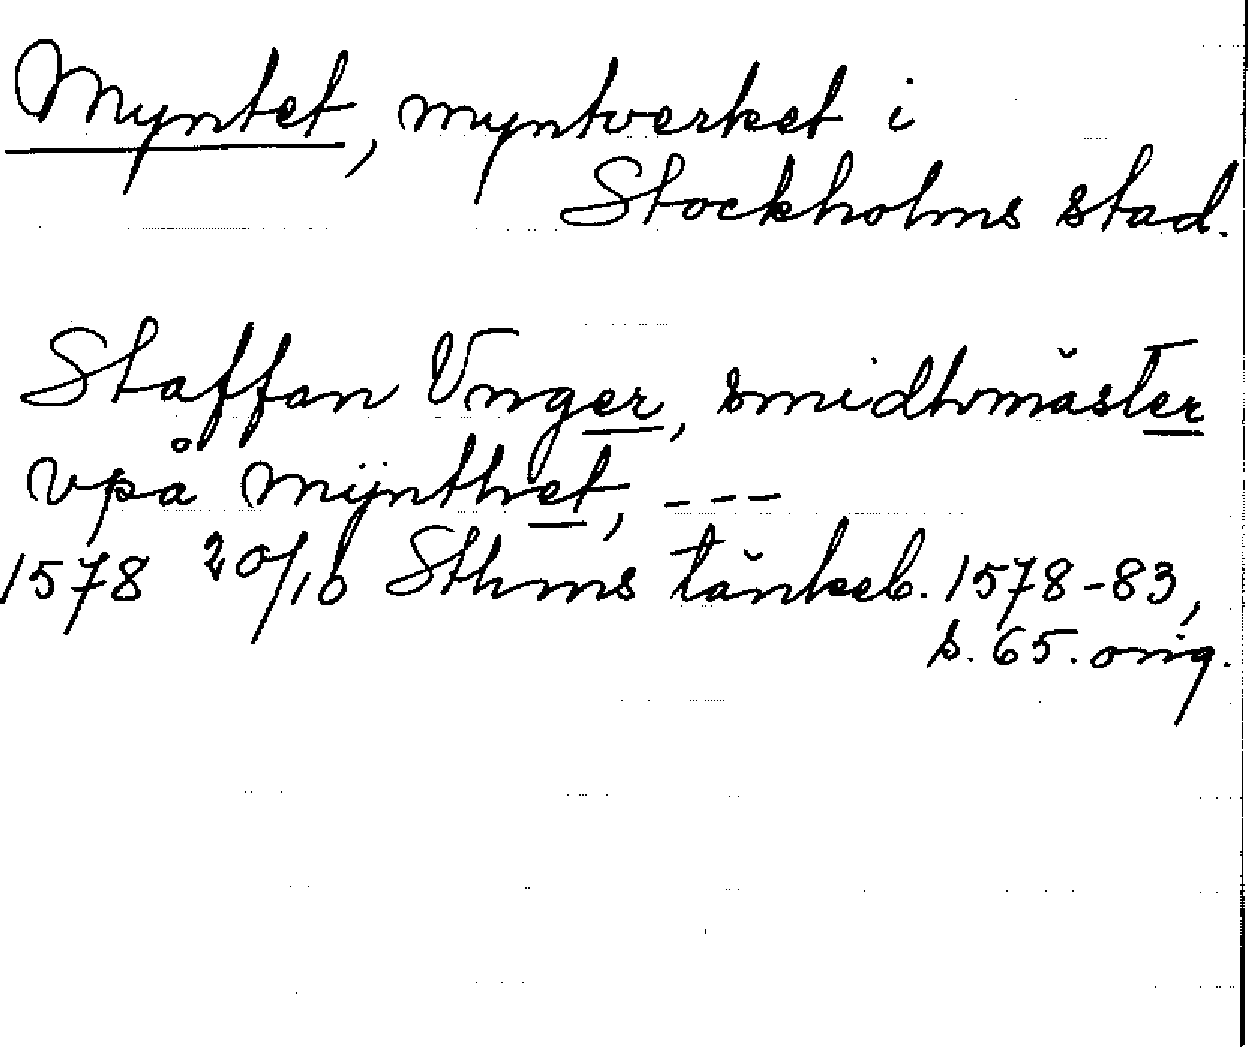 Myntet, myntverket i
Stockholms stad.
Staffan Vnger, smidhmäster
vpå mijnthet, ---
1578 20/10 Sthms tänkeb. 1578-83,
s. 65. orig.